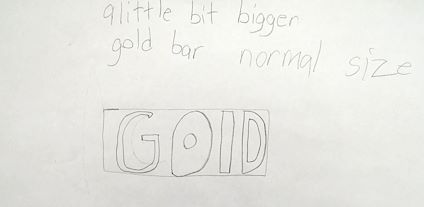 a little bit bigger
gold bar normal size
GOlD